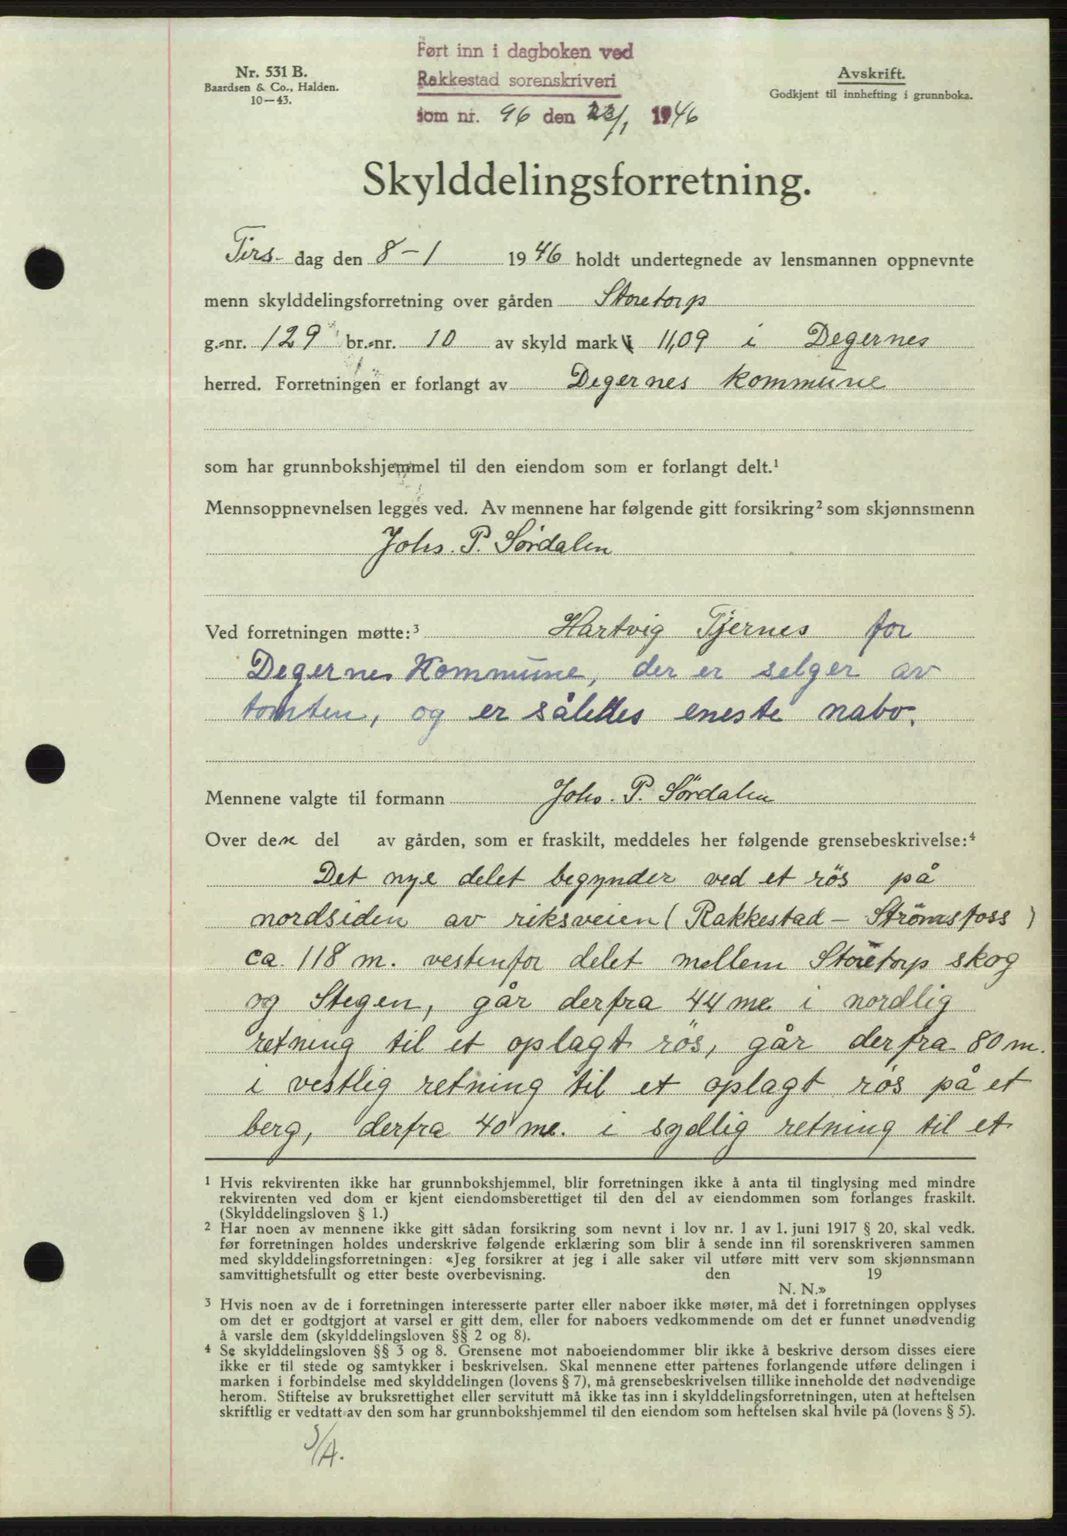 Nr. 531 B.
Baardsen & Co., Halden.
10—43.
Ført inn i dagboken ved
Rakkestad sorenskriveri
som nr. 96 den 23/1 1946
Avskrift.
Godkjent til innhefting i grunnboka.
Skylddelingsforretning.
Tirs- dag den 8-1 1946 holdt undertegnede av lensmannen oppnevnte
menn skylddelingsforretning over gården Storetorp
g.-nr. 129 br.-nr. 10 av skyld mark 11,09 i Degernes
herred. Forretningen er forlangt av Degernes kommune
som har grunnbokshjemmel til den eiendom som er forlangt delt.¹
Mennsoppnevnelsen legges ved. Av mennene har følgende gitt forsikring² som skjønnsmenn
Johs. P. Sördalen
Ved forretningen møtte:³ Hartvig Tjernes for
Degernes Kommune, der er selger av
tomten, og er således eneste nabo.
Mennene valgte til formann Johs. P. Sördalen
Over den del av gården, som er fraskilt, meddeles her følgende grensebeskrivelse:⁴
Det nye delet begynder ved et rös på
nordsiden av riksveien (Rakkestad - Strömsfoss)
ca. 118 m. vestenfor delet mellem Storetorp skog
og Stegen, går derfra 44 me i nordlig
retning til et oplagt rös, går derfra 80 m.
i vestlig retning til et oplagt rös på et
berg, derfra 40 me. i sydlig retning til et
¹ Hvis rekvirenten ikke har grunnbokshjemmel, blir forretningen ikke å anta til tinglysing med mindre
rekvirenten ved dom er kjent eiendomsberettiget til den del av eiendommen som forlanges fraskilt.
(Skylddelingsloven § 1.)
² Har noen av mennene ikke gitt sådan forsikring som nevnt i lov nr. 1 av 1. juni 1917 § 20, skal vedk.
før forretningen holdes underskrive følgende erklæring som blir å sende inn til sorenskriveren sammen
med skylddelingsforretningen: «Jeg forsikrer at jeg i alle saker vil utføre mitt verv som skjønnsmann
samvittighetsfullt og etter beste overbevisning. den 19
N. N.»
³ Hvis noen av de i forretningen interesserte parter eller naboer ikke møter, må det i forretningen opplyses
om det er godtgjort at varsel er gitt dem, eller for naboers vedkommende om det er funnet unødvendig
å varsle dem (skylddelingsloven §§ 2 og 8).
⁴ Se skylddelingsloven §§ 3 og 8. Grensene mot naboeiendommer blir ikke å beskrive dersom disses eiere
ikke er til stede og samtykker i beskrivelsen. Skal mennene etter partenes forlangende utføre delingen i
marken i forbindelse med skylddelingen (lovens § 7), må grensebeskrivelsen tillike inneholde det nødvendige
herom. Stiftelse av bruksrettighet eller servitutt må ikke tas inn i skylddelingsforretningen, uten at heftelsen
skriftlig er vedtatt av den som har grunnbokshjemmel til den eiendom som heftelsen skal hvile på (lovens § 5).